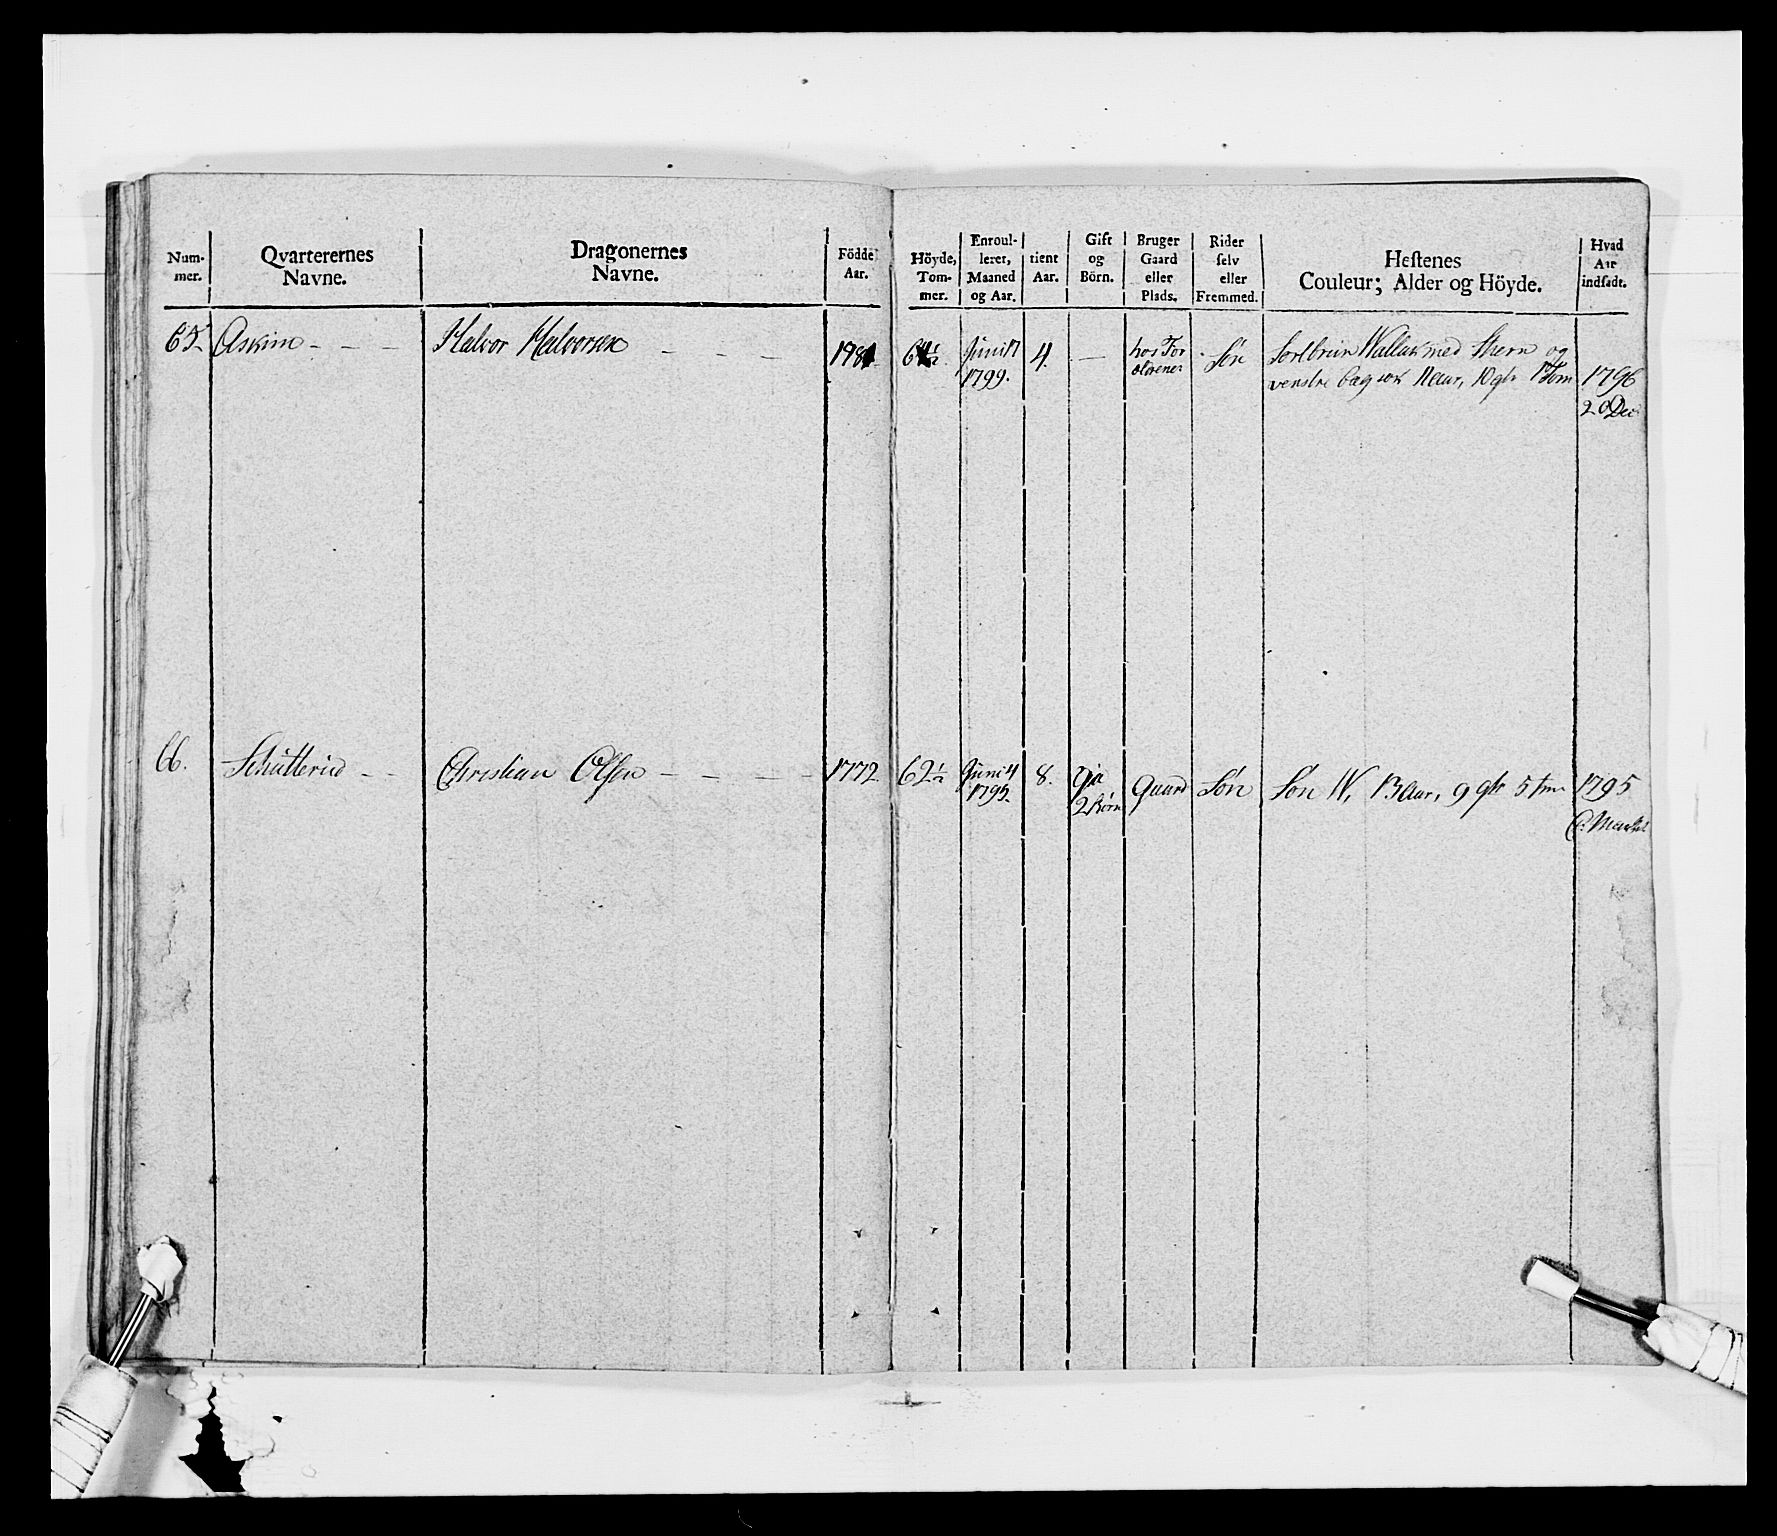 Num-
mer.
Qvarterernes
Navne.
Dragonernes
Navne.
Födde
Aar.
Höyde,
Tom-
mer.
Enroul-
leret,
Maaned
og Aar.
tient
Aar.
Gift
og
Börn.
Bruger
Gaard
eller
Plads.
Rider
selv
eller
Fremmed.
Hestenes
Couleur; Alder og Höyde.
Hvad
Aar
indsadt.
65 Askim - - -
Halvor Halvorsen - - -
1781
61½
Juni 17
1799.
4.
—
hos For
ældrene
Søn
Sortbrun Wallak med Stiern og
venstre bag sok 11 aar, 10 qtr 1 Tom
1796
20 Dec
66. Schutterud - -
Christian Olsen - - - -
1772
62½
Juni 4
1795.
8.
ja
2 børn
Gaard
Søn
W, 13 Aar, 9 qtr 5 tm
1795